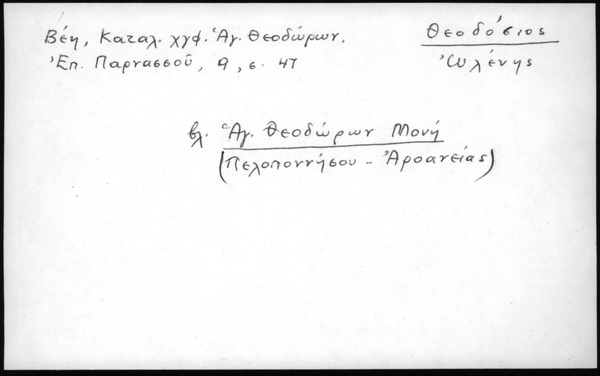 Θεοδόσιος
Ὠλένης
Βέη, Καταλ. χγφ. Ἁγ. Θεοδώρων.
Ἐπ. Παρνασσοῦ, 9, σ. 47
βλ. Ἁγ. Θεοδώρων Μονή
(Πελοποννήσου - Ἀροανείας)